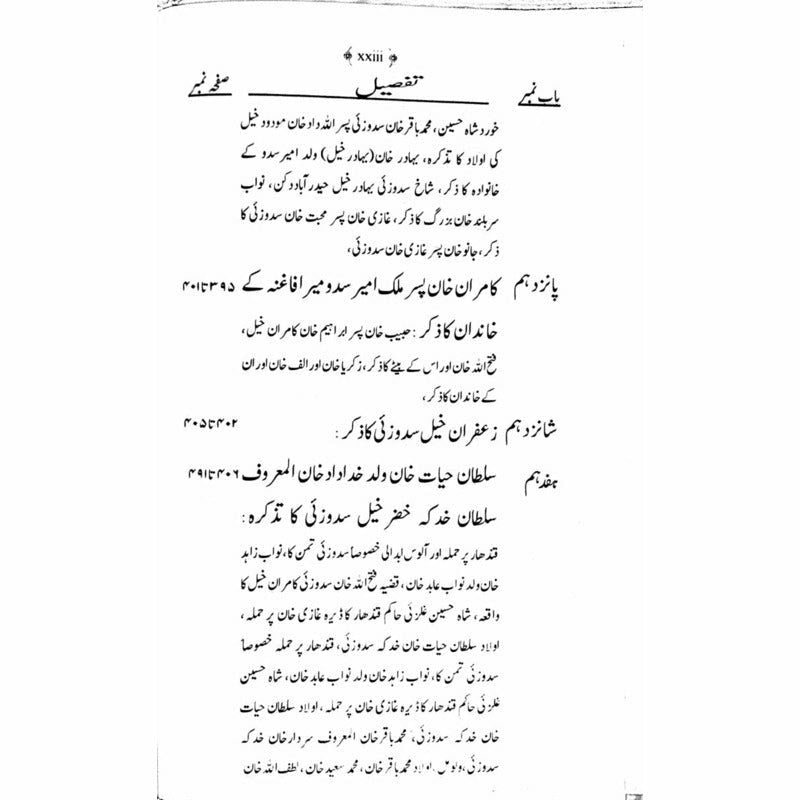 xxiii
باب نمبر تفصیل صفحہ نمبر
خورد شاہ حسین، محمد باقر خان سدوزئی پسر اللہ داد خان مودود خیل
کی اولاد کا تذکرہ، بہادر خان (بہادر خیل) ولد امیر سدو کے
خانوادہ کا ذکر، شاخ سدوزئی بہادر خیل حیدرآباد دکن، نواب
سربلند خان بزرگ کا ذکر، غازی خان پسر محبت خان سدوزئی کا
ذکر، جانو خان پسر غازی خان سدوزئی،
پانزدہم کامران خان پسر ملک امیر سدو میر افاغنہ کے ۳۹۵ تا ۴۰۱
خاندان کا ذکر: حبیب خان پسر ابراہیم خان کامران خیل،
فتح اللہ خان اور اس کے بیٹے کا ذکر، زکریا خان اور الف خان اور ان
کے خاندان کا ذکر،
شانزدہم زعفران خیل سدوزئی کا ذکر: ۴۰۲ تا ۴۰۵
ہفدہم سلطان حیات خان ولد خداداد خان المعروف ۴۰۶ تا ۴۹۱
سلطان خدکہ خضر خیل سدوزئی کا تذکرہ:
قندھار پر حملہ اور آلوس ابدالی خصوصاً سدوزئی تمن کا، نواب زاہد
خان ولد نواب عابد خان، قضیہ فتح اللہ خان سدوزئی کامران خیل کا
واقعہ، شاہ حسین غلزئی حاکم قندھار کا ڈیرہ غازی خان پر حملہ،
اولاد سلطان حیات خان خدکہ سدوزئی، قندھار پر حملہ خصوصاً
سدوزئی تمن کا، نواب زاہد خان ولد نواب عابد خان، شاہ حسین
غلزئی حاکم قندھار کا ڈیرہ غازی خان پر حملہ، اولاد سلطان حیات
خان خدکہ سدوزئی، محمد باقر خان المعروف سردار خان خدکہ
سدوزئی، اولاد محمد باقر خان، محمد سعید خان، لطف اللہ خان